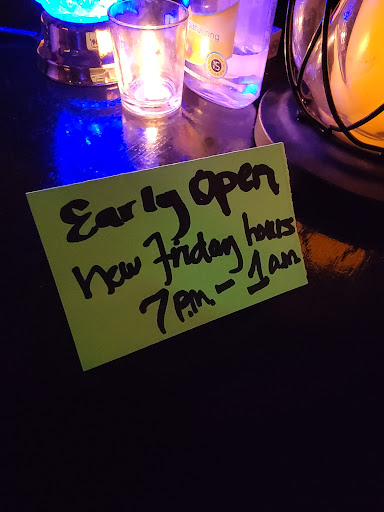 Early Open
New Friday hours
7 p.m. - 1 am